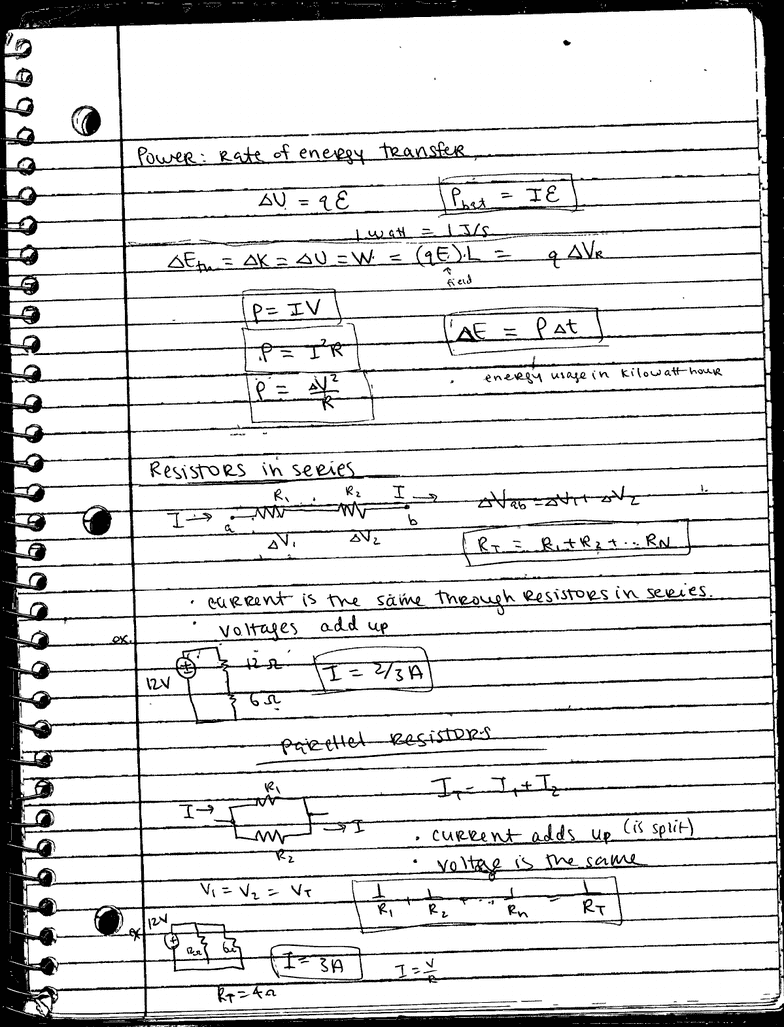 Power: Rate of energy transfer
ΔU = qℰ    P_bat = Iℰ
1 watt = 1 J/s
ΔE_th = ΔK = ΔU = W = (qE)·L = q ΔV_R
↑ field
P = IV
P = I²R    ΔE = PΔt
P = ΔV²/R    energy usage in kilowatt hour
Resistors in series
I → a R₁ R₂ I → b    ΔV_ab = ΔV₁ + ΔV₂
ΔV₁ ΔV₂    R_T = R₁ + R₂ + ... R_N
• current is the same through resistors in series.
• voltages add up
ex.
12V + 12Ω 6Ω    I = 2/3 A
Parellel resistors
I → R₁ R₂ → I    I_T = I₁ + I₂
• current adds up (is split)
• voltage is the same
V₁ = V₂ = V_T    1/R₁ + 1/R₂ + ... 1/R_n = 1/R_T
ex 12V + 12Ω 6Ω    I = 3A    I = V/R
R_T = 4Ω